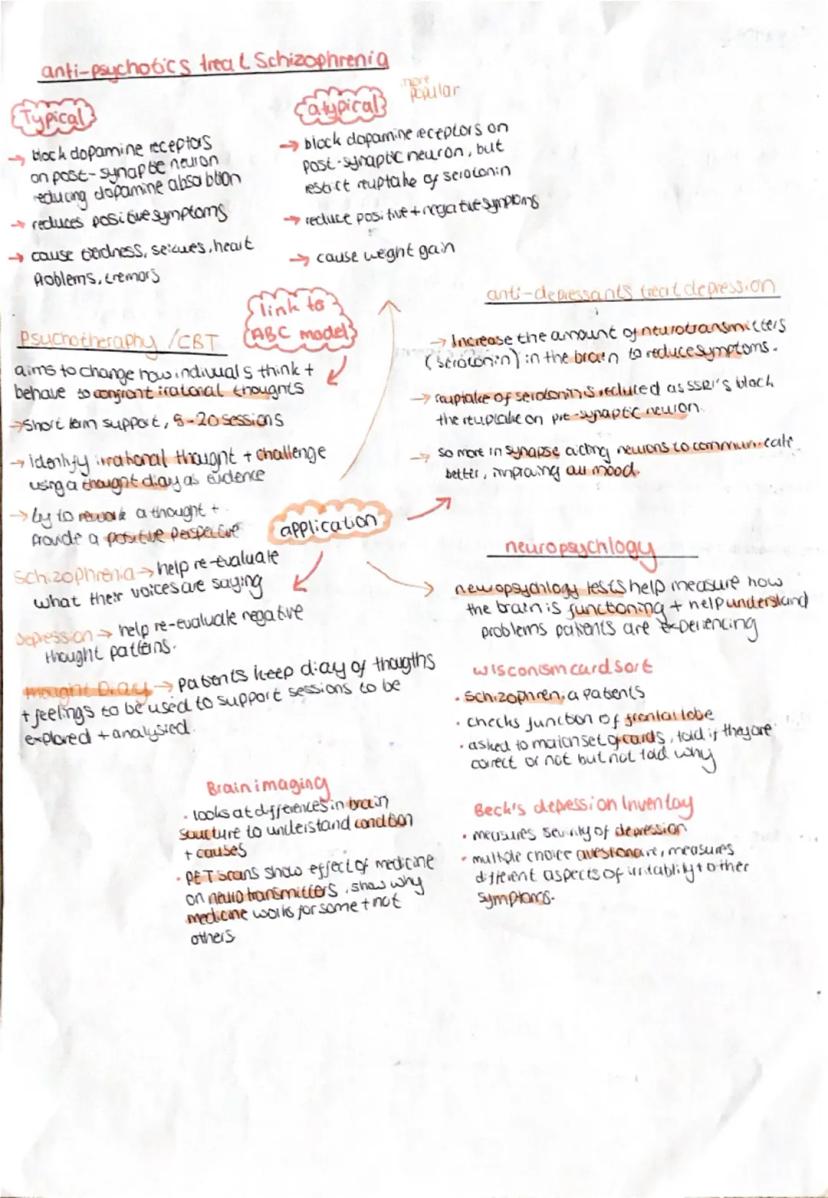 anti-psychotics treat Schizophrenia
Typical
→ block dopamine receptors
on post-synaptic neuron
reducing dopamine absabtion
→ reduces positive symptoms
→ cause tierdness, seizues, heart
Problems, tremors
atypical
more
popular
→ block dopamine receptors on
post-synaptic neuron, but
restict reuptake of serotonin
→ reduce positive + negative symptoms
→ cause weight gain
link to
ABC model
anti-depressants treat depression
→ Increase the amount of neurotransmitters
(serotonin) in the brain to reduce symptoms.
→ reuptake of serotonin is reduced as SSRI's block
the reuptake on pre-synaptic neuron.
→ so more in synapse aiding neurons to communicate
better, improving our mood.
Psychotherapy / CBT
aims to change how indiviuals think +
behave to confront irrational thoughts
→ Short term support, 5-20 sessions
→ identify irrational thought + challenge
using a thought diary as evidence
→ try to rework a thought +
Provide a positive perspective
Schizophrenia → help re-evaluate
what their voices are saying
Depression → help re-evaluate negative
thought patterns.
Thought Diary → patients keep diary of thougths
+ feelings to be used to support sessions to be
explored + analysied.
application
neuropsychlogy
neuropsychlogy tests help measure how
the brain is functioning + help understand
problems patients are experiencing
wisconism card sort
• schizophrenia patients
• checks function of frontal lobe
• asked to match set of cards, told if they are
correct or not but not told why
Beck's depression Inventory
• measures severity of depression
• multiple choice questionare, measures
different aspects of irritablity + other
symptoms.
Brain imaging
• looks at differences in brain
structure to understand condition
+ causes
• PET scans show effect of medicine
on neurotransmitters, show why
medicine works for some + not
others